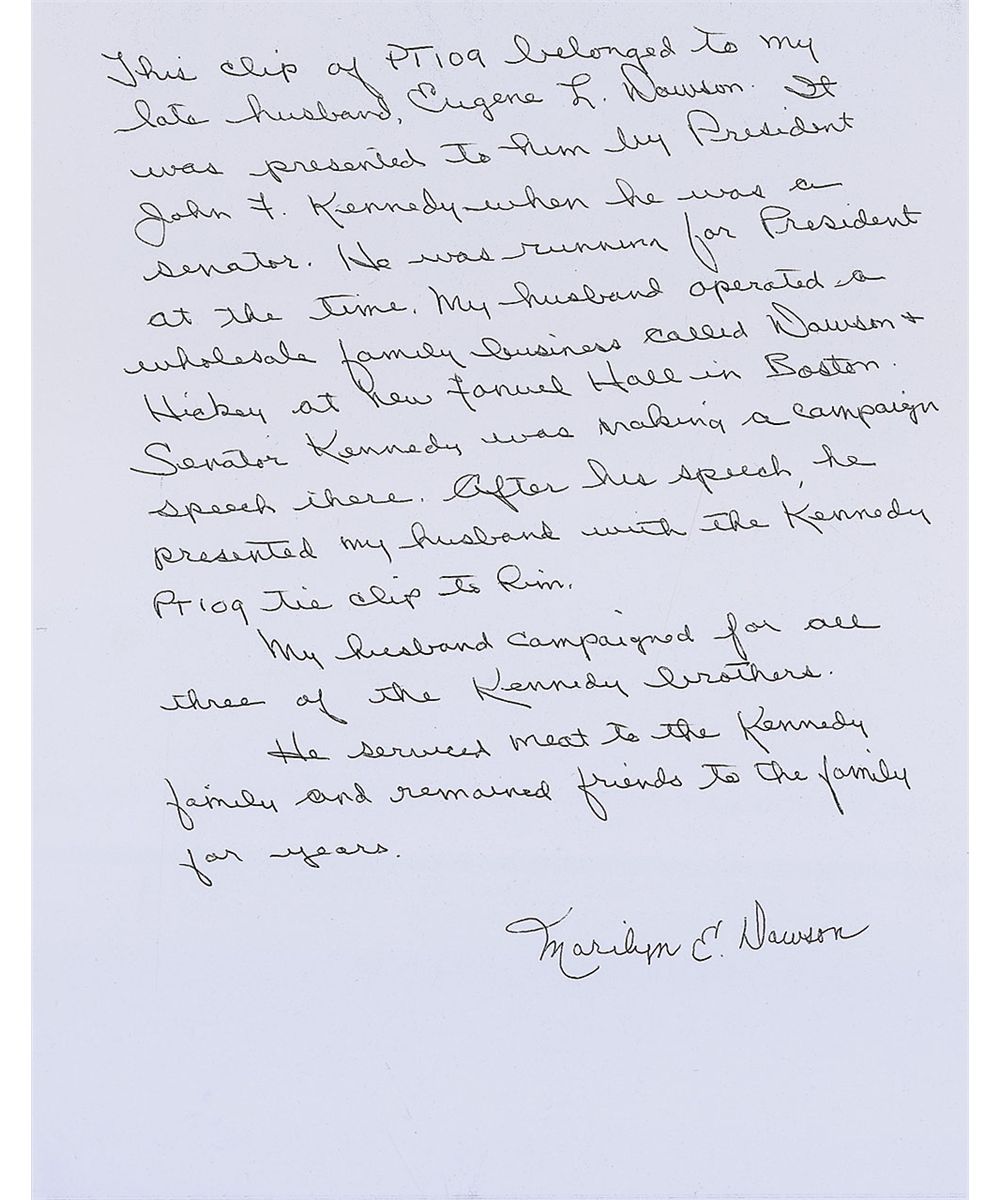 This clip of PT109 belonged to my
late husband, Eugene L. Dawson. It
was presented to him by President
John F. Kennedy when he was a
senator. He was running for President
at the time. My husband operated a
wholesale family business called Dawson +
Hickey at new Fanuel Hall in Boston.
Senator Kennedy was making a campaign
speech there. After his speech, he
presented my husband with the Kennedy
PT109 tie clip to him.
My husband campaigned for all
three of the Kennedy brothers.
He serviced meat to the Kennedy
family and remained friends to the family
for years.
Marilyn E. Dawson